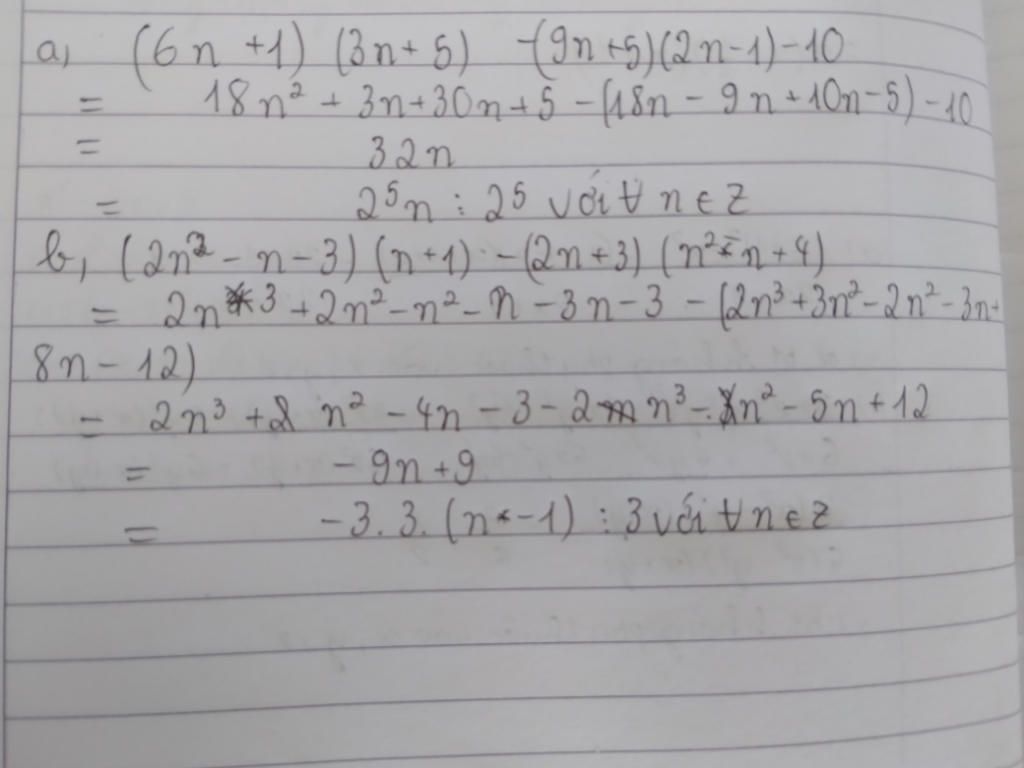 a, (6n + 1) (3n + 5) - (9n + 5)(2n - 1) - 10
= 18n² + 3n + 30n + 5 - (18n - 9n + 10n - 5) - 10
= 32n
= 2⁵n ⋮ 2⁵ với ∀ n ∈ Z
b, (2n² - n - 3) (n + 1) - (2n + 3) (n² - n + 4)
= 2n³ + 2n² - n² - n - 3n - 3 - (2n³ + 3n² - 2n² - 3n +
8n - 12)
= 2n³ + n² - 4n - 3 - 2n³ - n² - 5n + 12
= -9n + 9
= -3.3.(n - 1) ⋮ 3 với ∀ n ∈ Z